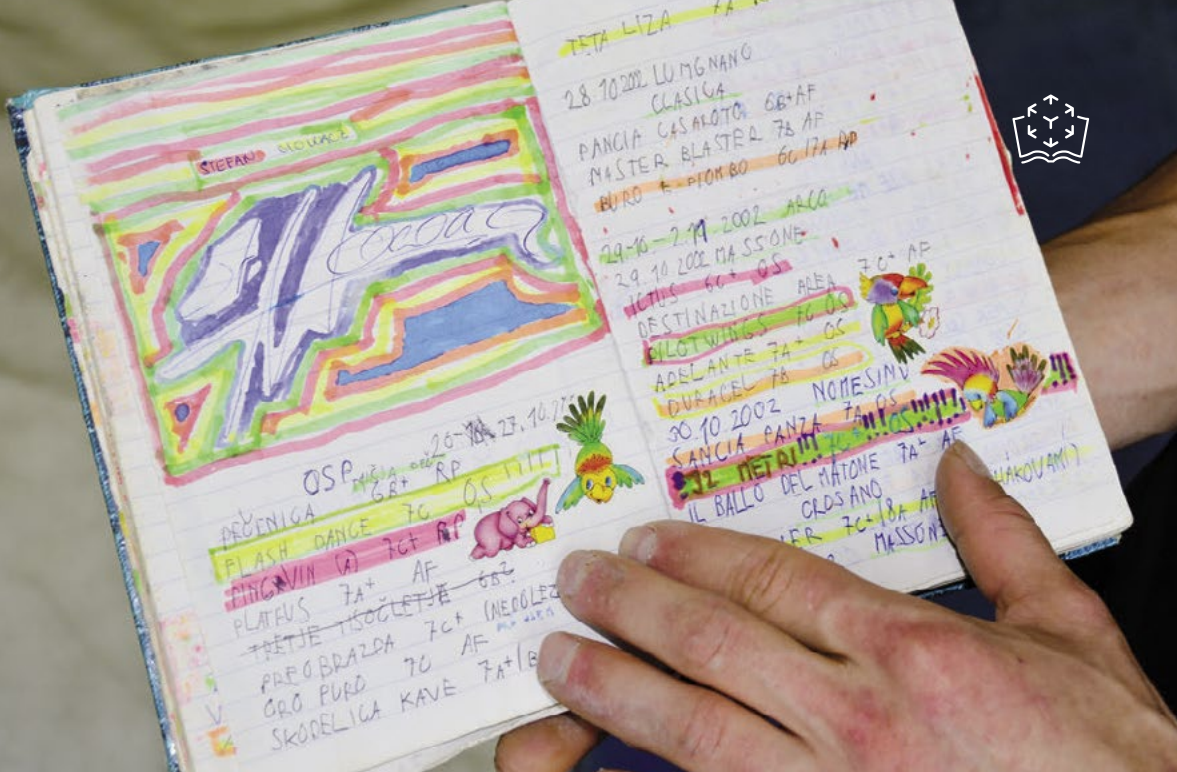 STEFAN
OSP 27.10.
PEČENICA 6B+ RP
FLASH DANCE 7C O,S !!!!
PINGVIN (A) 7C+ RP
PLATFUS 7A+ AF
TRETJE TISOČLETJE 6B?
PREOBRAZBA 7C+
ORO PURO 7C AF
SKODELICA KAVE 7A+/B
TETA LIZA 7A
28.10.2002 LUMGNANO
CLASICA
PANCIA CASAROTO 6B+AF
MASTER BLASTER 7B AF
BURO E PIOMBO 6C/7A
29.10-2.11.2002 ARCO
29.10.2002 MASSONE
ICTUS 6C+ OS
DESTINAZIONE AREA 7C+ AF
PILOTWINGS 7C OS
ADELANTE 7A+ OS
DURACEL 7B OS
30.10.2002 NOMESINO
SANCIA PANZA 7A OS
METRI!!! OS!!!!!!
IL BALLO DEL MATONE 7A+ AF
CROSANO
7C+/8A AF
MASSONE